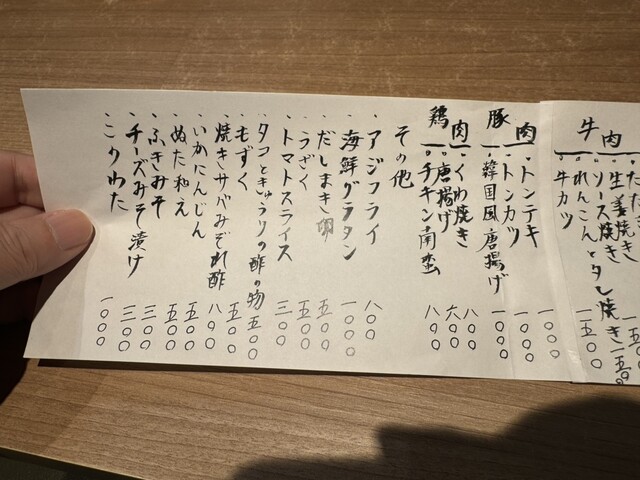 牛肉
たたき
生姜焼き 一五〇〇
ソース焼き 一五〇〇
れんこんとタレ焼き 一五〇〇
牛カツ
豚肉
トンテキ 一〇〇〇
トンカツ 一〇〇〇
韓国風唐揚げ 一〇〇〇
鶏肉
くわ焼き 八〇〇
唐揚げ 六〇〇
チキン南蛮 八〇〇
その他
アジフライ 八〇〇
海鮮グラタン 一〇〇〇
だしまき卵 五〇〇
うざく 五〇〇
トマトスライス 三〇〇
タコときゅうりの酢の物 五〇〇
もずく 五〇〇
焼きサバみぞれ酢 八〇〇
いかにんじん 五〇〇
ぬた和え 五〇〇
ふきみそ 三〇〇
チーズみそ漬け 三〇〇
このわた 一〇〇〇